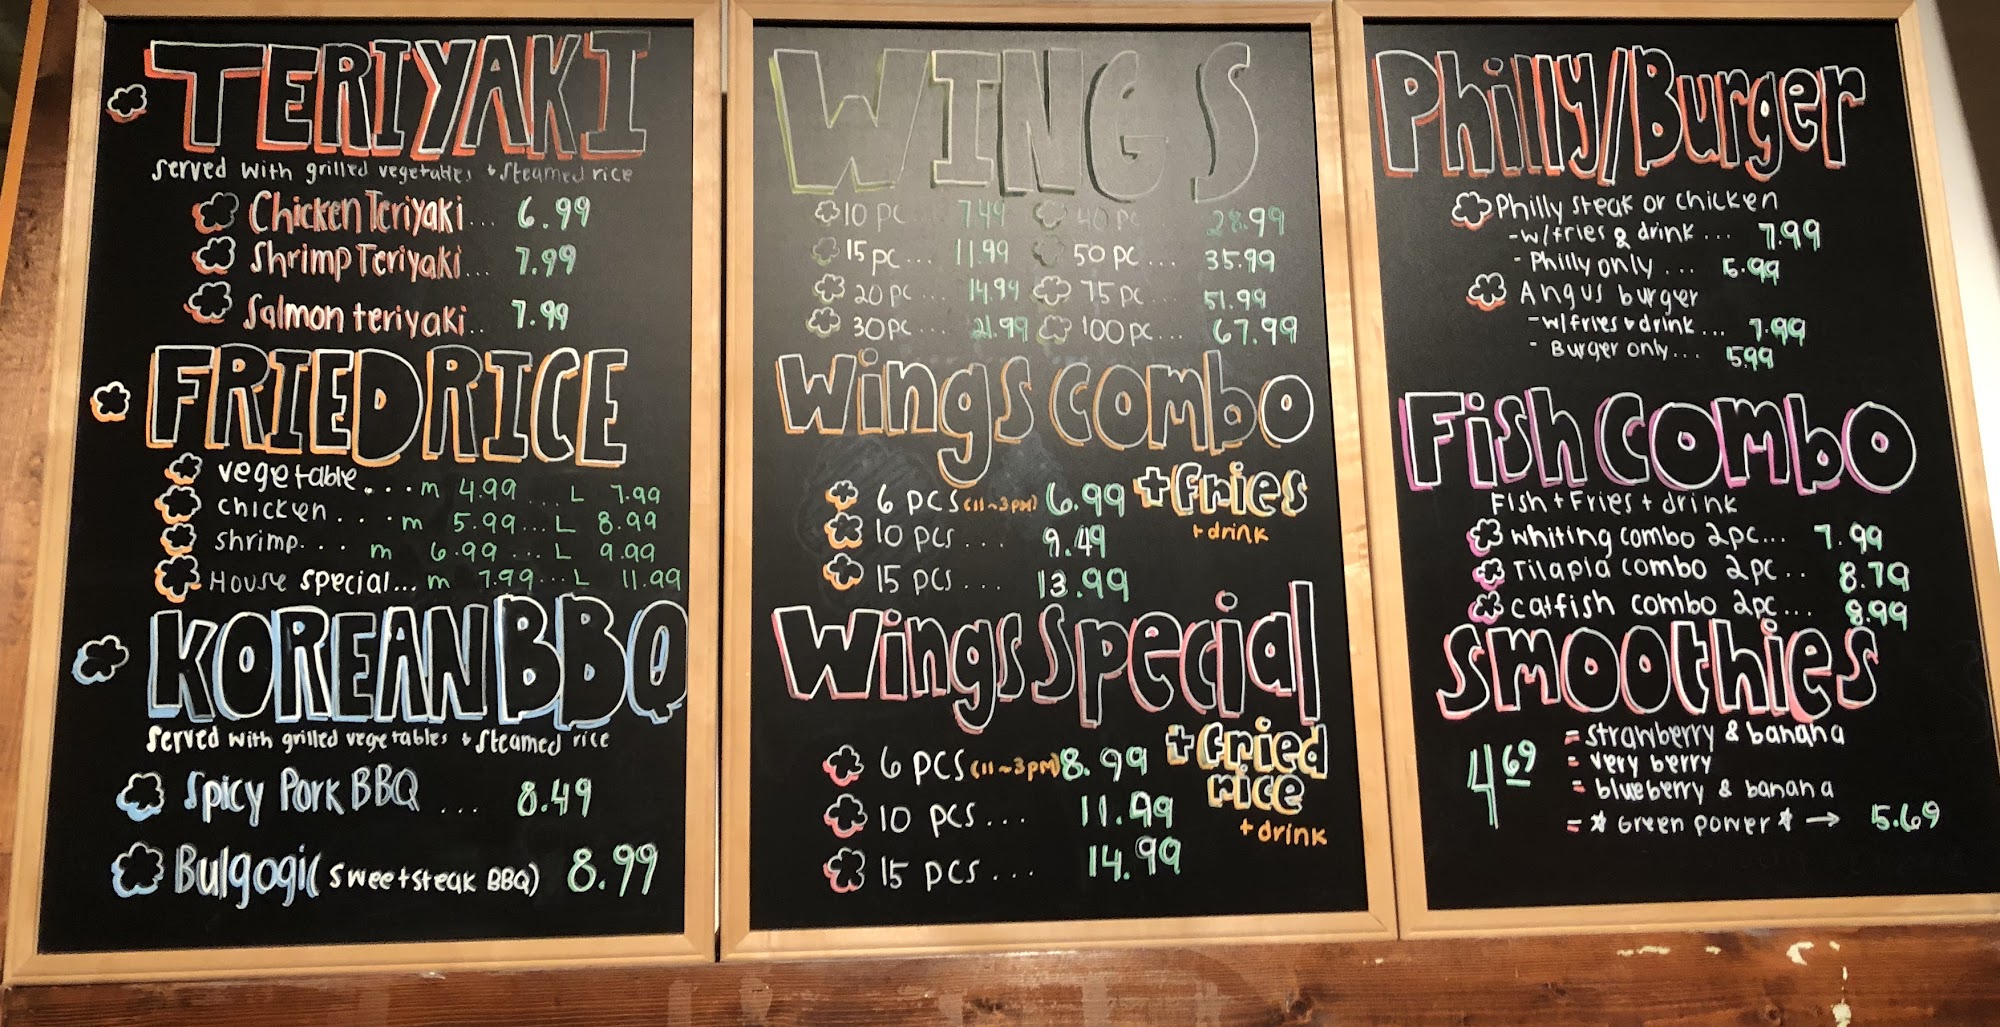 TERIYAKI
served with grilled vegetables + steamed rice
Chicken Teriyaki... 6.99
Shrimp Teriyaki... 7.99
Salmon teriyaki.. 7.99
FRIED RICE
vegetable...m 4.99 ...L 7.99
chicken...m 5.99...L 8.99
shrimp... m 6.99 ...L 9.99
House special...m 7.99...L 11.99
KOREAN BBQ
served with grilled vegetables + steamed rice
Spicy Pork BBQ ... 8.49
Bulgogi (sweet steak BBQ) 8.99
WINGS
10 pc... 7.49 40 pc 28.99
15 pc... 11.99 50 pc... 35.99
20 pc... 14.99 75 pc... 51.99
30 pc... 21.99 100 pc... 67.99
Wings combo
+ fries
6 pcs (11~3pm) 6.99
+ drink
10 pcs... 9.49
15 pcs... 13.99
Wings special
+ fried
rice
6 pcs (11~3pm) 8.99
+ drink
10 pcs... 11.99
15 pcs... 14.99
Philly/Burger
Philly steak or chicken
-w/fries & drink... 7.99
- Philly only... 5.99
Angus burger
-w/fries + drink... 7.99
- Burger only... 5.99
Fish combo
Fish + Fries + drink
whiting combo 2pc... 7.99
Tilapia combo 2pc.. 8.79
catfish combo 2pc... 8.99
smoothies
4.69
= strawberry & banana
= very berry
= blueberry & banana
= * Green power * → 5.69